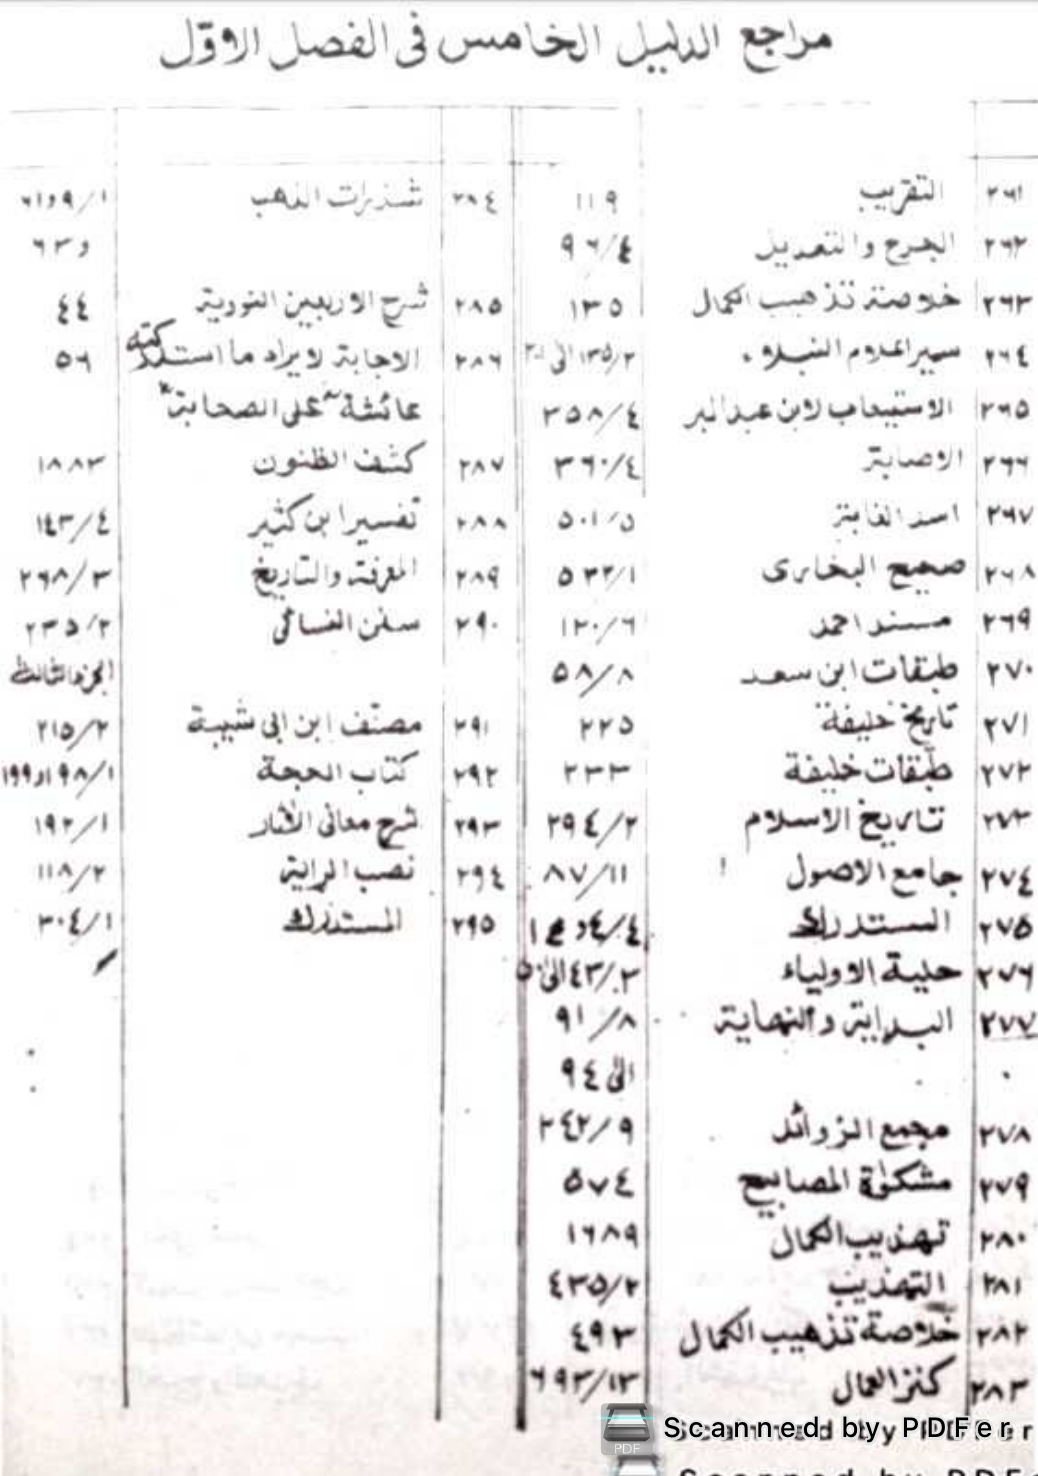 مراجع الدليل الخامس فى الفصل الاوّل
٢٦١ التقريب ١١٩
٢٦٢ الجرح والتعديل ٤/٩٦
٢٦٣ خلاصة تذهيب الكمال ١٣٥
٢٦٤ سير اعلام النبلاء ٢/١٣٥ الى
٢٦٥ الاستيعاب لابن عبدالبر ٤/٣٥٨
٢٦٦ الاصابة ٤/٣٦٠
٢٦٧ اسد الغابة ٥/٥٠١
٢٦٨ صحيح البخارى ١/٥٣٢
٢٦٩ مسند احمد ٦/١٢٠
٢٧٠ طبقات ابن سعد ٨/٥٨
٢٧١ تاريخ خليفة ٢٢٥
٢٧٢ طبقات خليفة ٣٣٣
٢٧٣ تاريخ الاسلام ٢/٢٩٤
٢٧٤ جامع الاصول ١١/٨٧
٢٧٥ المستدرك ٤/٤
٢٧٦ حلية الاولياء ٢/٤٣ الى ٥٠
٢٧٧ البداية والنهاية ٨/٩١
الى ٩٤
٢٧٨ مجمع الزوائد ٩/٢٤٢
٢٧٩ مشكوة المصابيح ٥٧٤
٢٨٠ تهذيب الكمال ١٦٨٩
٢٨١ التهذيب ٢/٤٣٥
٢٨٢ خلاصة تذهيب الكمال ٤٩٣
٢٨٣ كنز العمال ١٣/٦٩٣
٢٨٤ شذرات الذهب ١/٩ و٦١
و٦٣
٢٨٥ شرح الاربعين النووية ٤٤
٢٨٦ الاجابة لايراد ما استدركته ٥٦
عائشة على الصحابة
٢٨٧ كشف الظنون ١٨٨٣
٢٨٨ تفسير ابن كثير ٤/١٤٣
٢٨٩ المعرفة والتاريخ ٣/٢٦٨
٢٩٠ سنن النسائى ٢/٢٣٥
الجزء الثالث
٢٩١ مصنف ابن ابى شيبة ٢/٢١٥
٢٩٢ كتاب الحجة ١/١٩٨ و١٩٩
٢٩٣ شرح معانى الآثار ١/١٩٢
٢٩٤ نصب الراية ٢/١١٨
٢٩٥ المستدرك ١/٣٠٤
Scanned by PDFer
PDF